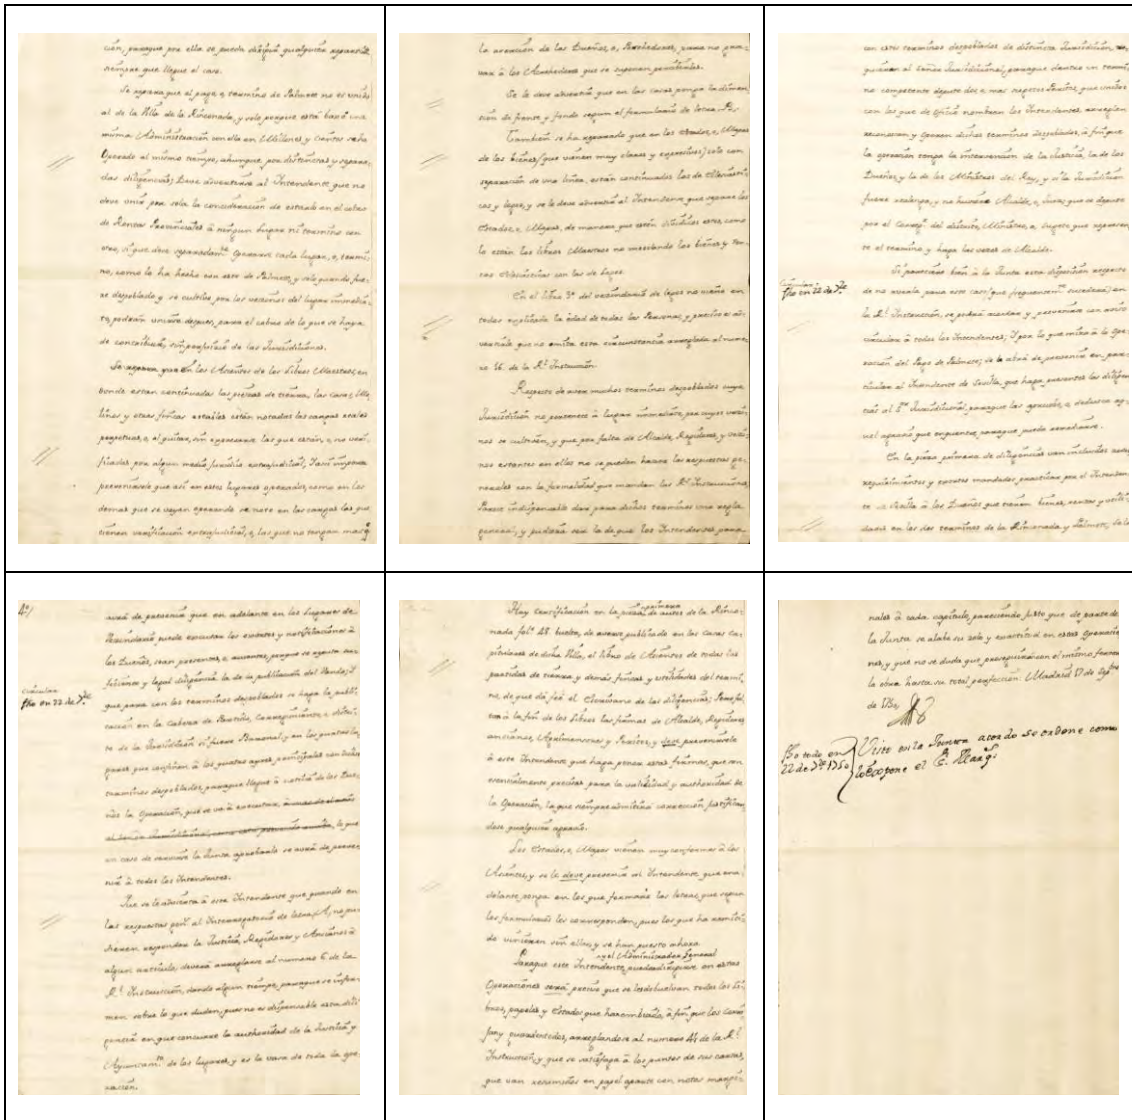 cion, paraque por ella se pueda disipar qualquiera reparo
siempre que llegue el caso.
Se repara que el pago, o, termino de Palmete no es unido
al de la Villa de la Rinconada, y solo porque està baxo una
misma Administracion con ella en Millones y Cientos se ha
Operado al mismo tiempo, ahunque por distinctas y separa-
das diligencias; Deve advertirse al Intendente que no
deve unir por sola la consideracion de estarlo en el cobro
de Rentas Provinciales à ningun lugar ni termino con
otro, si que deve separadam.te Operarse cada lugar, o, termi-
no, como lo ha hecho con este de Palmete, y solo quando fue-
re despoblado y se cultive por los vecinos del lugar immedia-
to, podràn unirse despues, para el calculo de lo que se haya
de contribuir, sin perjuicio de las Jurisdiciones.
Se repara que en los Asientos de los Libros Maestros, en
donde estan continuadas las piezas de tierra, las casas, Mo-
linos y otras fincas estables estàn notados los cargos reales
perpetuos, o, al quitar, sin expresarse los que estàn, o, no veri-
ficados por algun medio juridico extrajudicial, y assi importa
prevenirsele que assi en estos lugares operados, como en los
demas que se vayan operando se note en los cargos los que
tienen verificacion extrajudicial, o, los que no tengan mas q.
la asercion de los Dueños, o, Perceheros, para no pri-
var à los Acrehedores que se supieren
Se le deve advertir que en las casas ponga la dimen-
sion de frente y fondo segun el formulario de letra
Tambien se ha reparado que en los Estados, o, Mapas
de los bienes (que vienen muy claros y expresivos) solo con
separacion de una linea, estàn continuados los de Eclesiasti-
cos y legos, y se le deve advertir al Intendente que separe los
Estados, o, Mapas, de manera que estèn divididos estos, como
lo estàn los libros Maestros no mezclando los bienes y Ren-
tas Eclesiasticas con las de legos.
En el libro 3.º del vecindario de legos no viene en
todos explicada la edad de todas las Personas, y preciso es ad-
vertirle que no omita esta circunstancia arreglada al nume-
ro 16. de la R.l Instruccion.
Respecto de aver muchos terminos despoblados cuya
Jurisdicion no pertenece à lugar immediato, por cuyos veci-
nos se cultivan, y que por falta de Alcalde, Regidores, y veci-
nos estantes en ellos no se pueden hacer las respuestas ge-
nerales con la formalidad que mandan las R.s Instrucciones,
Parece indispensable dar para dichos terminos una regla
general, y pudiera ser la de que los Intendentes para
con estos terminos despoblados de distincta Jurisdicion,
al Señor Jurisdicional, paraque dentro un termi-
no competente depute dos, o, mas sugetos Peritos, que unidos
con los que de Oficio nombren los Intendentes arreglen
reconozcan y Operen dichos terminos despoblados, à fin que
la operacion tenga la intervencion de la Justicia, la de los
Dueños, y la de los Ministros del Rey, y si la Jurisdicion
fuere realenga, y no huviere Alcalde, o, Justicia, que se depute
por el Corregidor del districto, Ministro, o, sugeto que represen-
te el termino y haga las veces de Alcalde.
Si pareciere bien à la Junta esta disposicion respecto
de no averla para este caso (que frequentem.te sucederà) en
la R.l Instruccion, se podrà acordar y prevenir con aviso
circular à todos los Intendentes; Y por lo que mira à la Ope-
racion del Pago de Palmete, se le abrà de prevenir en par-
ticular al Intendente de Sevilla, que haga presentes las diligen-
cias al S.or Jurisdicional, paraque las apruebe, o, deduzca aq-
uel agravio que encuentre, paraque pueda enmendarse.
En la pieza primera de diligencias van incluidos
requirimientos y exortos mandados practicar por el Intenden-
te de Sevilla à los Dueños que tienen bienes, rentas y utili-
dades en los dos terminos de la Rinconada y Palmete, se le
Circular
fho en 22 de 7.re
4.º/
avrà de prevenir que en adelante en los lugares de
Vecindario puede escusar los exortos y notificaciones à
los Dueños, sean presentes, o, ausentes, porque se reputa su-
ficiente y legal diligencia la de la publicacion del Vando; Y
que para con los terminos despoblados se haga la publi-
cacion en la Cabeza de Partido, Corregimiento, o, distric-
to de la Jurisdicion si fuere Baronal, y en los pueblos lu-
gares que confinan à las quatro partes principales con dichos
terminos despoblados, paraque llegue à noticia de los Due-
ños la Operacion, que se và à executar,
lo que
en caso de servirse la Junta aprobarlo se avrà de preve-
nir à todos los Intendentes.
Circular
fho en 22 de 7.re
Que se le advierta à este Intendente que quando en
las respuestas gen.s al Interrogatorio de letra A, no pu-
dieren responder la Justicia, Regidores y Ancianos à
algun articulo, deverà arreglarse al numero 6 de la
R.l Instruccion, dando algun tiempo, paraque se infor-
men sobre lo que duden, pues no es dispensable esta dili-
gencia en que concurre la authoridad de la Justicia y
Ayuntam.to de los lugares, y es la vasa de toda la ope-
racion.
Hay certificacion en la pieza primera de autos de la Rinco-
nada fol.º 48. buelto, de averse publicado en las casas ca-
pitulares de dicha Villa, el libro de Asientos de todas las
partidas de tierra y demàs fincas y utilidades del termi-
no, de que dà feè el Escrivano de las diligencias; Pero fal-
ta à la fin de los Libros las firmas de Alcalde, Regidores,
ancianos, Agrimensores y Peritos, y deve prevenirsele
à este Intendente que haga poner estas firmas, que son
esencialmente precisas para la valididad y authoridad de
la Operacion, la que siempre admitirà correccion justifican-
dose qualquiera agravio.
Los Estados, o, Mapas vienen muy conformes à los
Asientos, y se le deve prevenir al Intendente que en a-
delante ponga en los que formare las letras, que segun
los formularios les corresponden, pues los que ha remiti-
do vinieron sin ellas, y se han puesto ahora
Paraque este Intendente, y el Administrador General
puedan disponer en estas
Operaciones serà preciso que se les debuelvan todos los Li-
bros, papeles y Estados que han embiado, à fin que los
y guardandoles, arreglandose al numero 41 de la R.l
Instruccion, y que se satisfaga à los puntos de sus cartas,
que van resumidos en papel aparte con notas margi-
nales à cada capitulo, pareciendo justo que de parte de
la Junta se alabe su zelo y exactitud en estas Operacio-
nes, y que no se duda que proseguiran con el mismo fervor
la obra hasta su total perfeccion. Madrid 17 de Sep.re
de 1750,
fho todo en
22 de 7.re 1750
Visto en la Junta acordo se ordene como
lo expone el S. Marq.s